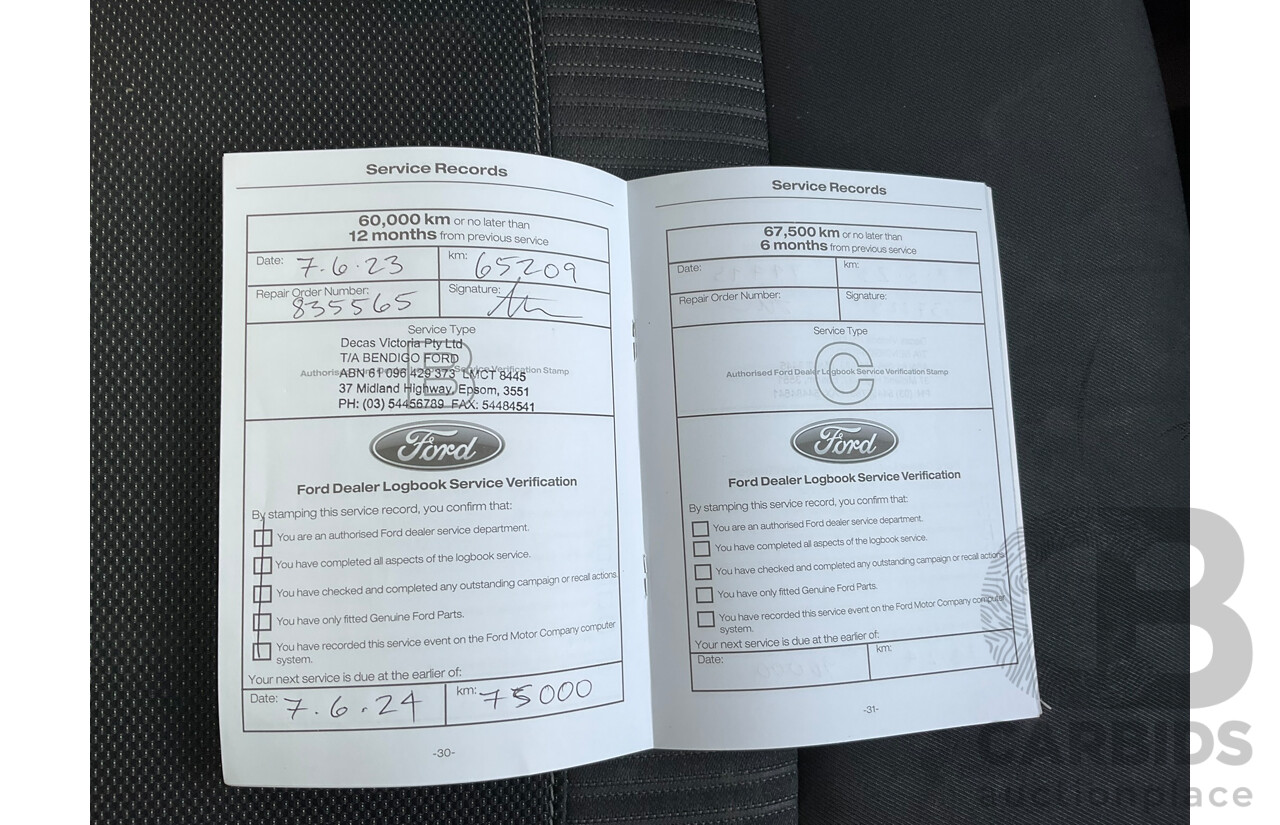 Service Records
60,000 km or no later than
12 months from previous service
Date: 7.6.23
km: 65209
Repair Order Number: 835565
Signature:
Service Type
B
Authorised Ford Dealer Logbook Service Verification Stamp
Decas Victoria Pty Ltd
T/A BENDIGO FORD
ABN 61 096 429 373 LMCT 8445
37 Midland Highway, Epsom, 3551
PH: (03) 54456789 FAX: 54484541
Ford
Ford Dealer Logbook Service Verification
By stamping this service record, you confirm that:
You are an authorised Ford dealer service department.
You have completed all aspects of the logbook service.
You have checked and completed any outstanding campaign or recall actions.
You have only fitted Genuine Ford Parts.
You have recorded this service event on the Ford Motor Company computer
system.
Your next service is due at the earlier of:
Date: 7.6.24
km: 75000
-30-
Service Records
67,500 km or no later than
6 months from previous service
Date:
km:
Repair Order Number:
Signature:
Service Type
C
Authorised Ford Dealer Logbook Service Verification Stamp
Ford
Ford Dealer Logbook Service Verification
By stamping this service record, you confirm that:
You are an authorised Ford dealer service department.
You have completed all aspects of the logbook service.
You have checked and completed any outstanding campaign or recall actions
You have only fitted Genuine Ford Parts.
You have recorded this service event on the Ford Motor Company computer
system.
Your next service is due at the earlier of:
Date:
km:
-31-
CB
CARBIDS
auctionplace